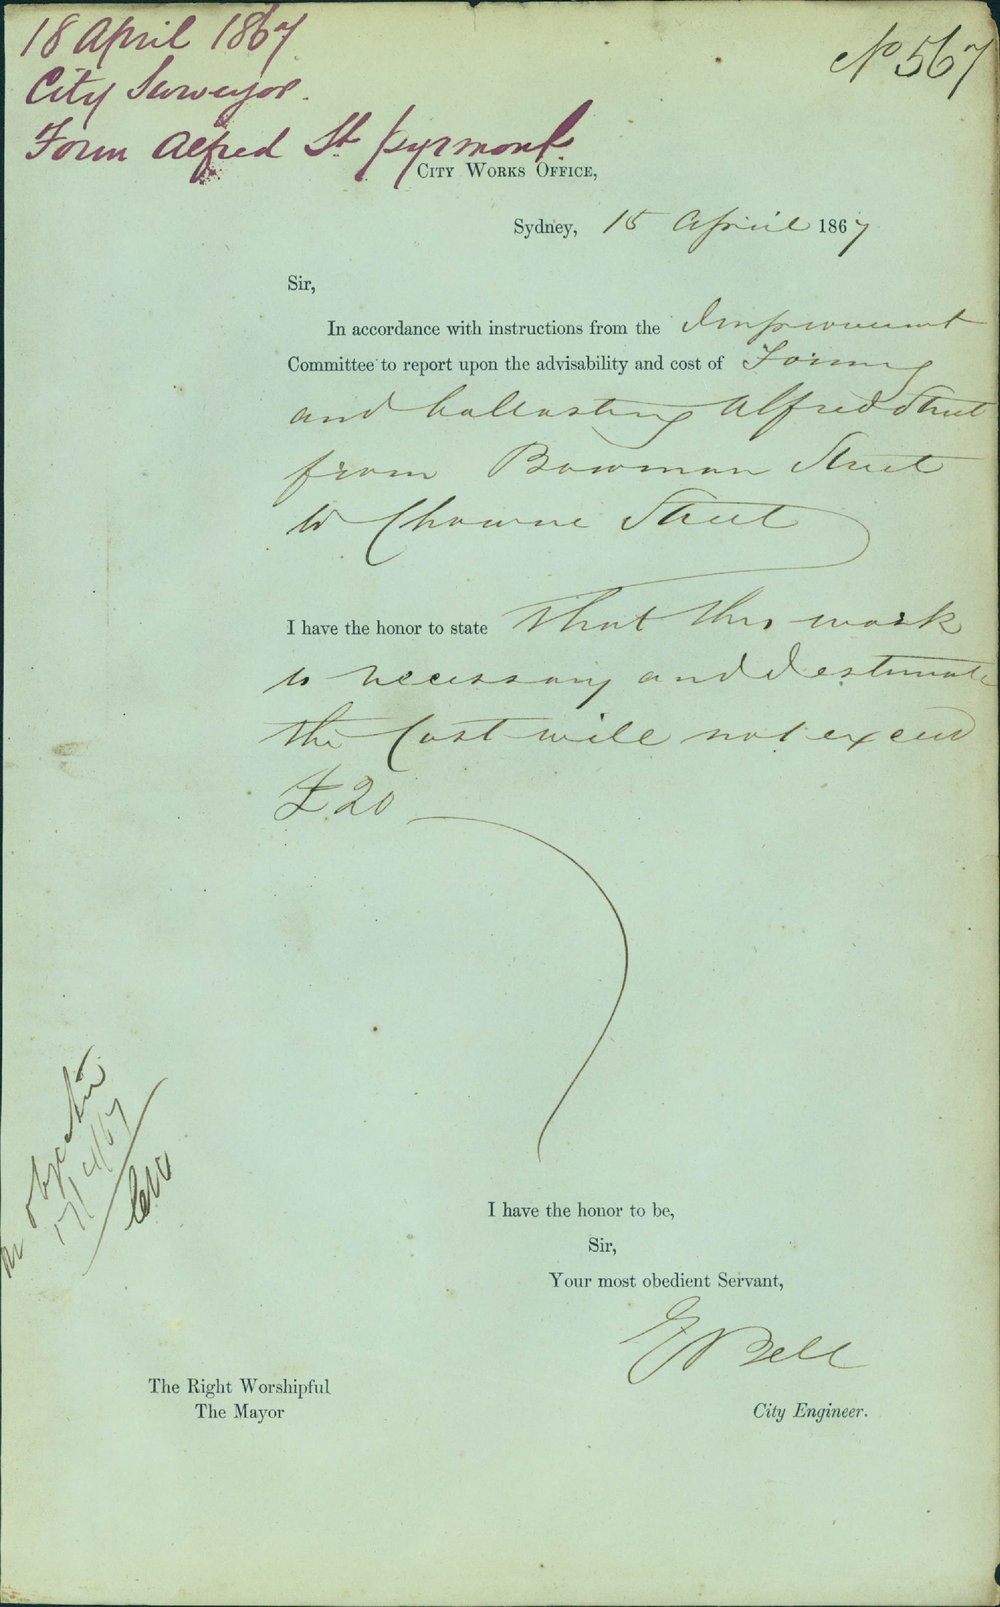 18 April 1867
No 567
City Surveyor.
Form Alfred St. Pyrmont.
CITY WORKS OFFICE,
Sydney, 15 April 1867
Sir,
In accordance with instructions from the Improvement
Committee to report upon the advisability and cost of Forming
and ballasting Alfred Street
from Bowman Street
to Chowne Street
I have the honor to state that this work
is necessary and I estimate
the Cost will not exceed
£20
no objection
17/4/67
I have the honor to be,
Sir,
Your most obedient Servant,
E Bell
The Right Worshipful
The Mayor
City Engineer.